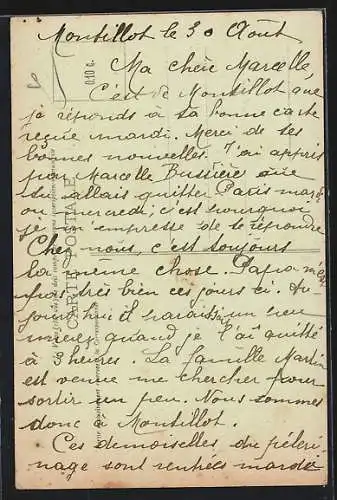 Montillot le 30 Août
Ma chère Marcelle,
C'est de Montillot que
je réponds à ta bonne carte
reçue mardi. Merci de tes
bonnes nouvelles. J'ai appris
par Marcelle Bussière que
tu allais quitter Paris mardi
ou mercredi; c'est pourquoi
je m'empresse de te répondre
Chez nous, c'est toujours
la même chose. Papa n'est
pas très bien ces jours ci. Au-
jourd'hui il paraissait un peu
mieux quand je l'ai quitté
à 3 heures. La famille Martin
est venue me chercher pour
sortir un peu. Nous sommes
donc à Montillot.
Ces demoiselles du pèleri-
nage sont rentrées mardi
CARTE POSTALE
0.10 c.